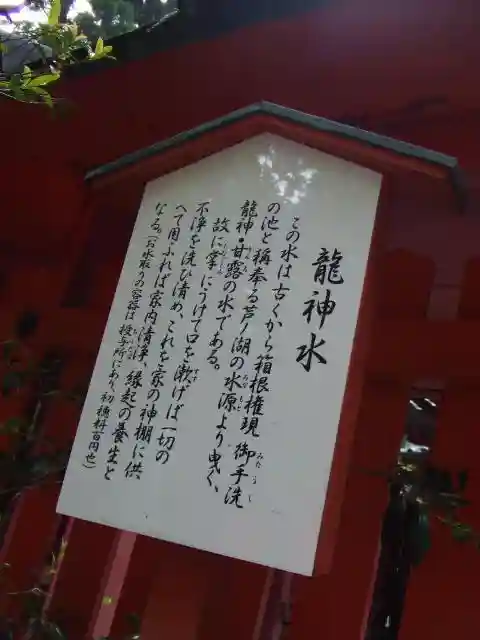 龍神水
この水は古くから箱根権現 御手洗
の池と称奉る芦ノ湖の水源より曳く、
龍神・甘露の水である。
故に掌にうけて口を漱げば一切の
不浄を洗い清め、これを家の神棚に供
へて用ふれば家内清浄、縁起の養生と
なる。(お水取りの容器は授与所にあり、初穂料百円也)